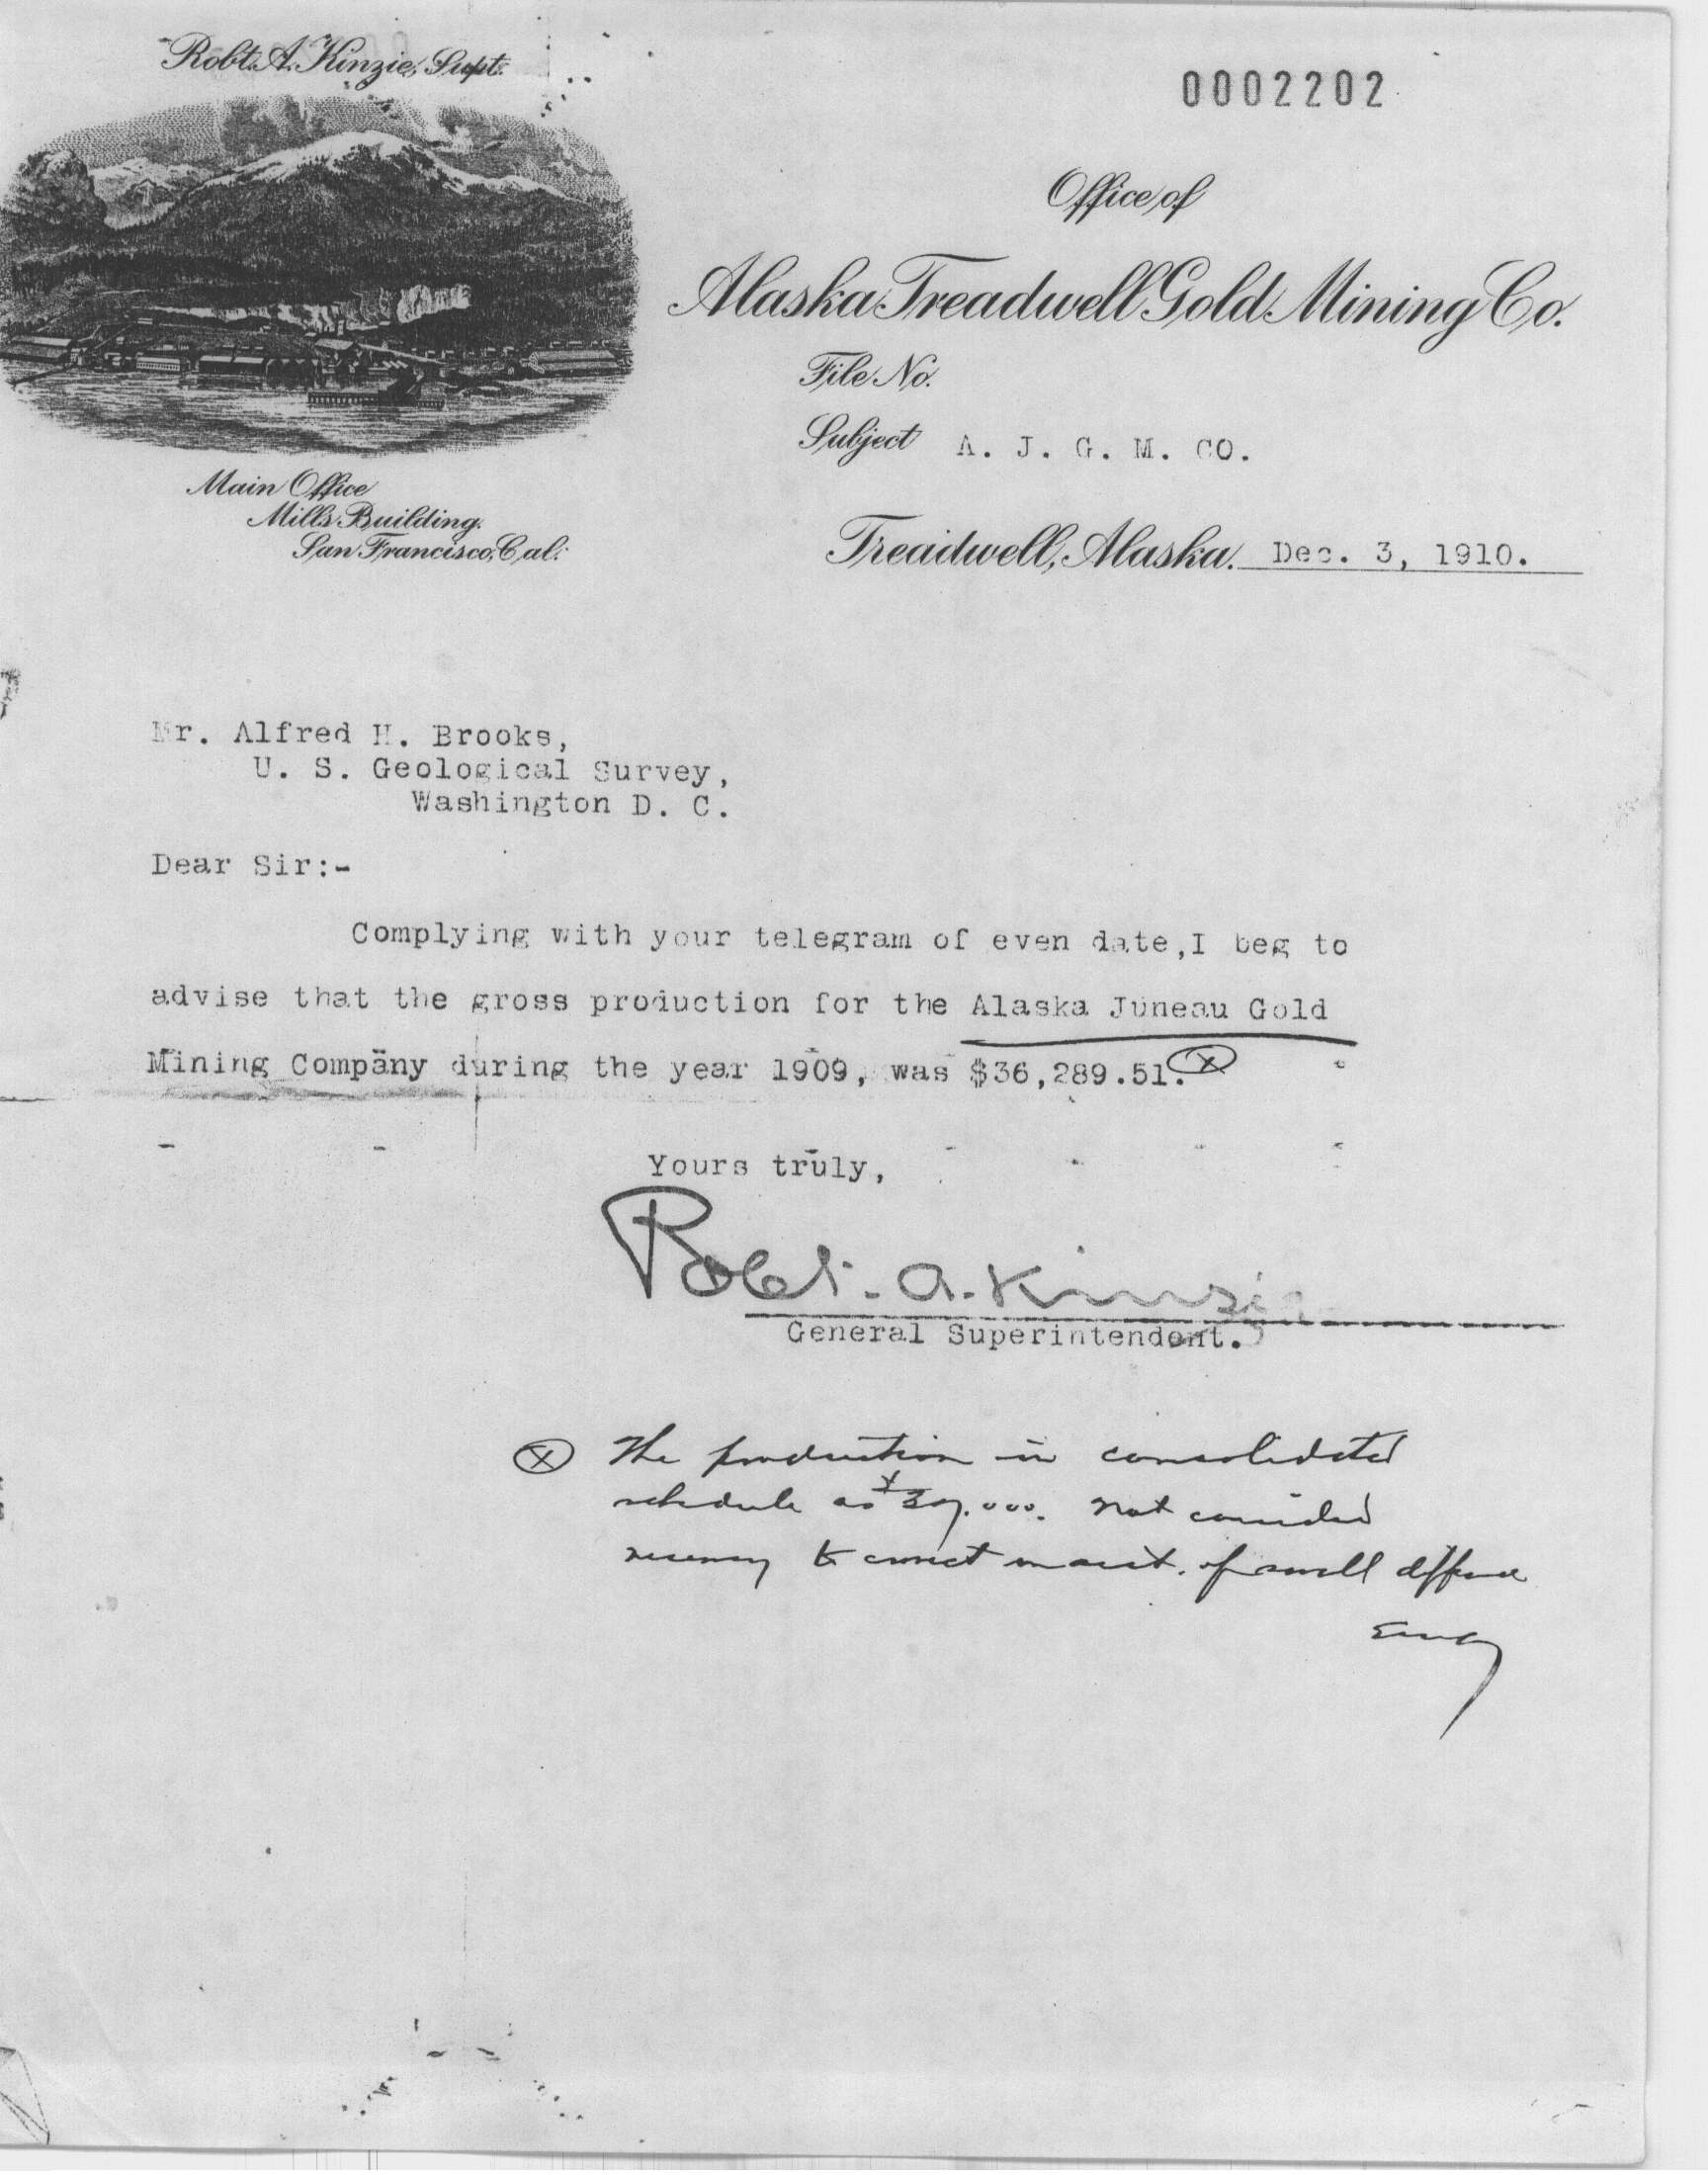 Robt. A. Kinzie, Supt.
0002202
Office of
Alaska Treadwell Gold Mining Co.
File No.
Subject A. J. G. M. CO.
Main Office
Mills Building.
San Francisco, Cal.
Treadwell, Alaska. Dec. 3, 1910.
Mr. Alfred H. Brooks,
U. S. Geological Survey,
Washington D. C.
Dear Sir:-
Complying with your telegram of even date,I beg to
advise that the gross production for the Alaska Juneau Gold
Mining Company during the year 1909, was $36,289.51. X
Yours truly,
Robt. A. Kinzie
General Superintendent.
X The production in consolidated
schedule as $37,000. Not considered
necessary to correct on acct. of small difference